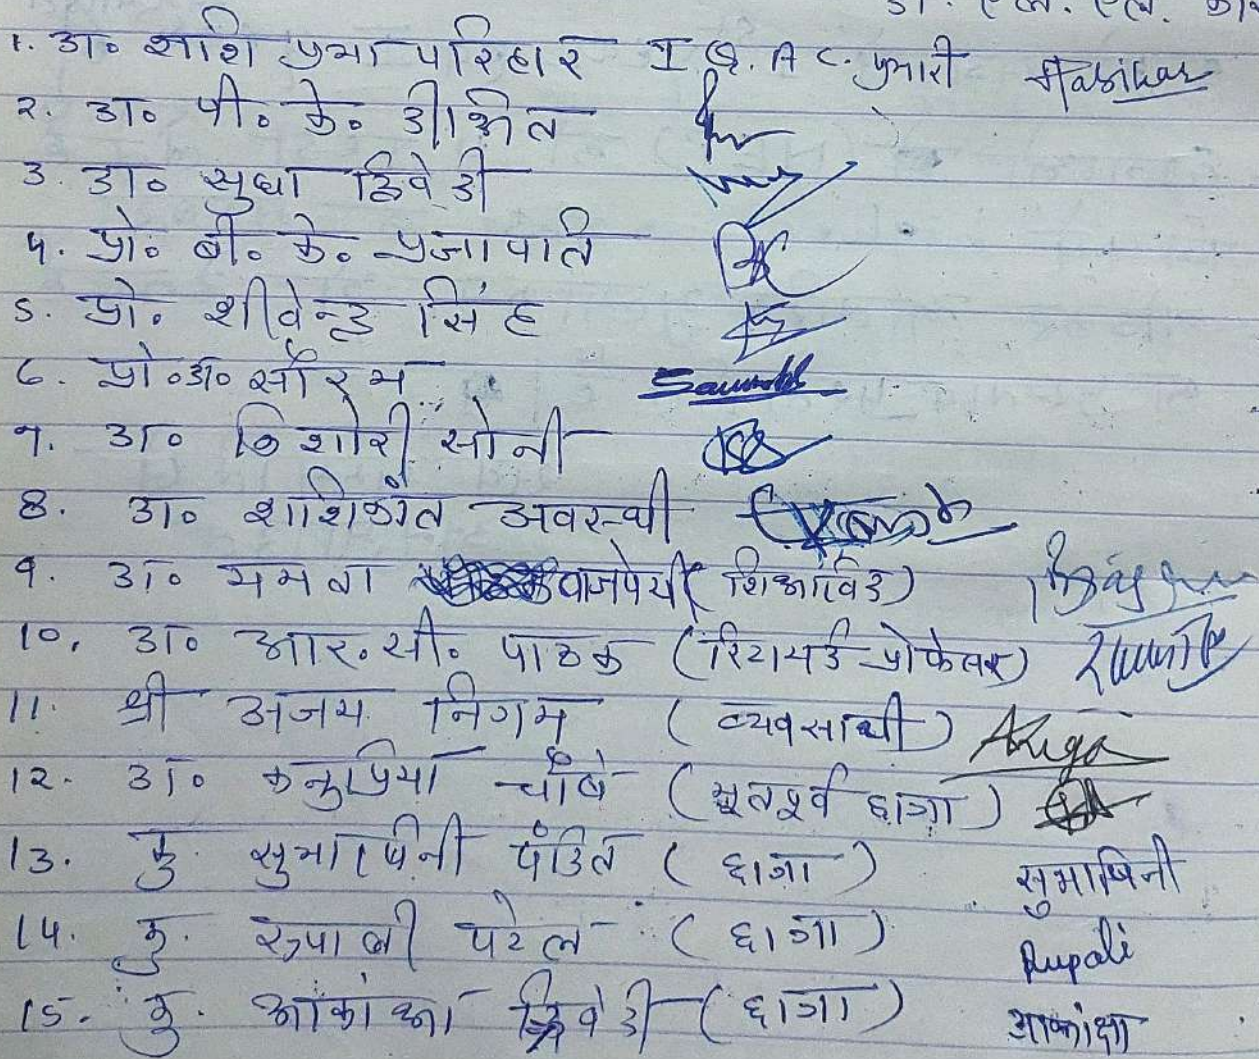 डॉ. एल. एल.
1. डा० शशि प्रभा परिहार I.Q.A.C. प्रभारी
२. डा० पी० के० दीक्षित
3. डा० सुधा द्विवेदी
4. प्रो० बी० के० प्रजापति
5. प्रो० शीवेन्द्र सिंह
6. प्रो०डा० सौरभ Saurabh
7. डा० किशोरी सोनी
8. डा० शशिकांत अवस्थी
9. डा० ममता वाजपेयी (शिक्षाविद)
10. डा० आर.सी. पाठक (रिटायर्ड प्रोफेसर)
11. श्री अजय निगम (व्यवसायी)
12. डा० कनुप्रिया चौबे (भूतपूर्व छात्रा)
13. कु. सुभाषिनी पंडित (छात्रा) सुभाषिनी
14. कु. रूपाली पटेल (छात्रा) Rupali
15. कु. आकांक्षा द्विवेदी (छात्रा) आकांक्षा